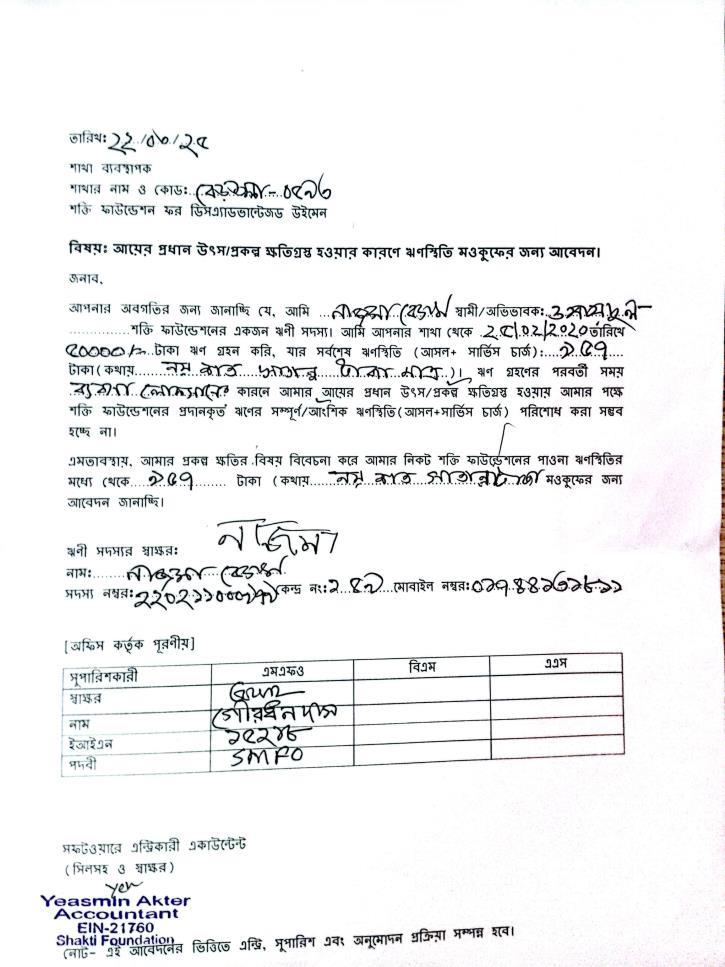 তারিখ: ২২/০৬/২৫
শাখা ব্যবস্থাপক
শাখার নাম ও কোড:
শক্তি ফাউন্ডেশন ফর ডিসএ্যাডভান্টেজড উইমেন
বিষয়: আয়ের প্রধান উৎস/প্রকল্প ক্ষতিগ্রস্থ হওয়ার কারণে ঋণস্থিতি মওকুফের জন্য আবেদন।
জনাব,
আপনার অবগতির জন্য জানাচ্ছি যে, আমি ... নাজমা বেগম স্বামী/অভিভাবক:
............শক্তি ফাউন্ডেশনের একজন ঋণী সদস্য। আমি আপনার শাখা থেকে তারিখে
টাকা ঋণ গ্রহন করি, যার সর্বশেষ ঋণস্থিতি (আসল+ সার্ভিস চার্জ):...৯৫৭....
টাকা(কথায়.......নয় শত সাতান্ন টাকা মাত্র..)। ঋণ গ্রহণের পরবর্তী সময়
ব্যবসা লোকসানের কারনে আমার আয়ের প্রধান উৎস/প্রকল্প ক্ষতিগ্রস্থ হওয়ায় আমার পক্ষে
শক্তি ফাউন্ডেশনের প্রদানকৃত ঋণের সম্পূর্ণ/আংশিক ঋণস্থিতি(আসল+সার্ভিস চার্জ) পরিশোধ করা সম্ভব
হচ্ছে না।
এমতাবস্থায়, আমার প্রকল্প ক্ষতির বিষয় বিবেচনা করে আমার নিকট শক্তি ফাউন্ডেশনের পাওনা ঋণস্থিতির
মধ্যে থেকে...৯৫৭........ টাকা (কথায়.....নয় শত সাতান্ন টাকা মওকুফের জন্য
আবেদন জানাচ্ছি।
ঋণী সদস্যর স্বাক্ষর: নাজমা
নাম:.......নাজমা বেগম
সদস্য নম্বর: কেন্দ্র নং: মোবাইল নম্বর:
[অফিস কর্তৃক পূরণীয়]
সুপারিশকারী এমএফও বিএম এএস
স্বাক্ষর
নাম গৌরধন দাস
ইআইএন ১৫২৭৮
পদবী SMFO
সফটওয়ারে এন্ট্রিকারী একাউন্টেন্ট
(সিলসহ ও স্বাক্ষর)
Yeasmin Akter
Accountant
EIN-21760
Shakti Foundation
নোট- এই আবেদনের ভিত্তিতে এন্ট্রি, সুপারিশ এবং অনুমোদন প্রক্রিয়া সম্পন্ন হবে।